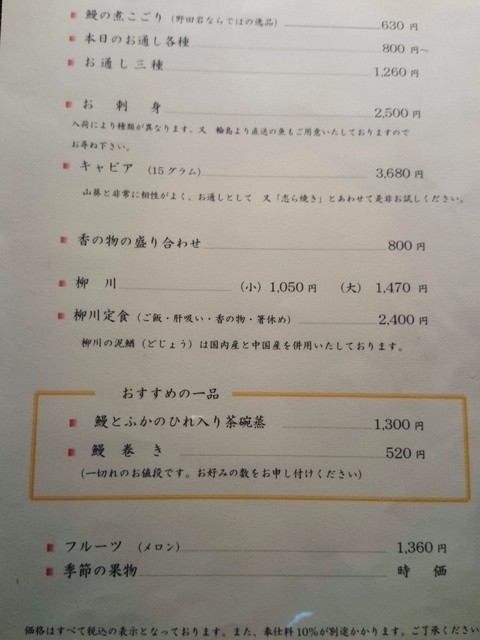 鰻の煮こごり（野田岩ならではの逸品） 630円
本日のお通し各種 800円～
お通し三種 1,260円
お刺身 2,500円
入荷により種類が異なります。又 輪島より直送の魚もご用意いたしておりますので
お尋ね下さい。
キャビア （15グラム） 3,680円
山葵と非常に相性がよく、お通しとして 又「志ら焼き」とあわせて是非お試しください。
香の物の盛り合わせ 800円
柳川 （小）1,050円 （大）1,470円
柳川定食（ご飯・肝吸い・香の物・箸休め） 2,400円
柳川の泥鰌（どじょう）は国内産と中国産を併用いたしております。
おすすめの一品
鰻とふかのひれ入り茶碗蒸 1,300円
鰻巻き 520円
（一切れのお値段です。お好みの数をお申し付けください）
フルーツ （メロン） 1,360円
季節の果物 時価
価格はすべて税込の表示となっております。また、奉仕料10%が別途かかります。ご了承ください